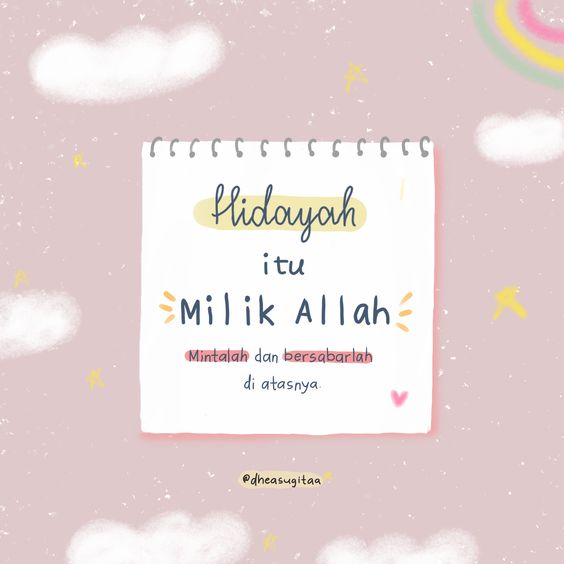 Hidayah
itu
Milik Allah
Mintalah dan bersabarlah
di atasnya.
@dheasugitaa